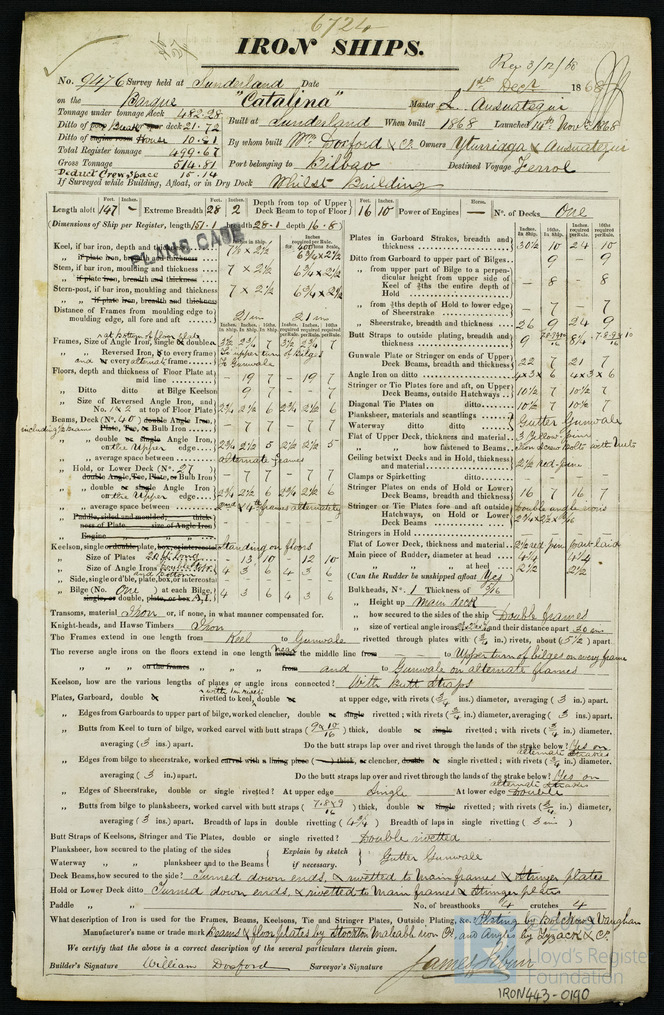 6724
IRON SHIPS.
Rec 3/12/68
No. 9476 Survey held at Sunderland Date 1st Decr 1868
on the Barque "Catalina" Master L. Ausuategui
Tonnage under tonnage deck 482.28
Ditto of Break deck 21.72
Ditto of House 10.81
Total Register tonnage 499.67
Gross Tonnage 514.81
Deduct Crew Space 15.14
Built at Sunderland When built 1868 Launched 14th Novr 1868
By whom built Wm Doxford & Co. Owners Yturriaga & Ausuategui
Port belonging to Bilbao Destined Voyage Ferrol
If Surveyed while Building, Afloat, or in Dry Dock Whilst Building
Length aloft 147 Extreme Breadth 28 2 Depth from top of Upper Deck Beam to top of Floor 16 10 Power of Engines — No. of Decks One
(Dimensions of Ship per Register, length 151.1 breadth 28.1 depth 16.8)
PLANS CASE
Keel, if bar, depth and thickness 7½ x 2½
Stem, if bar, moulding and thickness 7 x 2½ 6¾ x 2½
Stern-post, if bar, moulding and thickness 7 x 2½ 6¾ x 2½
Distance of Frames from moulding edge to moulding edge, all fore and aft 21 in 21 in
Frames, Size of Angle Iron, single
Reversed Iron, to every frame
Floors, depth and thickness of Floor Plate at mid line 19 7 19 7
Ditto ditto at Bilge Keelson 9 7 7
Size of Reversed Angle Iron, and No. 1 & 2 at top of Floor Plate 2¾ 2½ 6 2¾ 2½ 6
Beams, Deck
Plate, Tee, or Bulb Iron 7 7 7 7
double or single Angle Iron, on the Upper edge 2¾ 2½ 5 2½ 2½ 5
average space between alternate frames
Hold, or Lower Deck (No. 27
double Angle, Tee, Plate, or Bulb Iron 7 7 7 7
double or single Angle Iron, on the Upper edge 2¾ 2½ 6 2¾ 2½ 6
average space between 2nd & 4th frames alternately
Paddle, sided and moulded, thickness of Plate size of Angle Iron
Engine
Keelson, single or double plate, box, or intercostal Standing on floors
Size of Plates 13 10 12 10
Size of Angle Irons 4 3 6 4 3 6
Side, single or d'ble, plate, box, or intercostal
Bilge (No. One ) at each Bilge, single, or double, plate, box, or A.I. 4 3 6 4 3 6
Transoms, material Iron or, if none, in what manner compensated for.
Knight-heads, and Hawse Timbers Iron
Plates in Garboard Strakes, breadth and thickness 30½ 10 24 10
Ditto from Garboard to upper part of Bilge 9 9
from upper part of Bilge to a perpendicular height from upper side of Keel of ⅗ths the entire depth of Hold 8 8
from ⅗ths depth of Hold to lower edge of Sheerstrake 7 7
Sheerstrake, breadth and thickness 26 9 24 9
Butt Straps to outside plating, breadth and thickness
Gunwale Plate or Stringer on ends of Upper Deck Beams, breadth and thickness 22 7 21 7
Angle Iron on ditto 4x3x6 4x3x6
Stringer or Tie Plates fore and aft, on Upper Deck Beams, outside Hatchways 10½ 7 10½ 7
Diagonal Tie Plates on ditto 10½ 7 10½ 7
Planksheer, materials and scantlings
Waterway ditto ditto Gutter Gunwale
Flat of Upper Deck, thickness and material 3 Yellow pine
how fastened to Beams Iron screw bolts with nuts
Ceiling betwixt Decks and in Hold, thickness and material 2½ red pine
Clamps or Spirketting ditto
Stringer Plates on ends of Hold or Lower Deck Beams, breadth and thickness 16 7 16 7
Stringer or Tie Plates fore and aft outside Hatchways, on Hold or Lower Deck Beams Double angle irons
Stringers in Hold
Flat of Lower Deck, thickness and material 2½ red pine
Main piece of Rudder, diameter at head 4¼ 4¼
at heel 2½ 2½
(Can the Rudder be unshipped afloat Yes )
Bulkheads, No. 1 Thickness of 5/16
Height up Main deck
how secured to the sides of the ship Double frames
size of vertical angle irons and their distance apart 30 ins
The Frames extend in one length from Keel to Gunwale riveted through plates with (¾ in.) rivets, about (5½ ) apart.
The reverse angle irons on the floors extend in one length near the middle line from — to Upper turn of bilges on every frame
on the frames from and to Gunwale on alternate frames
Keelson, how are the various lengths of plates or angle irons connected? With Butt Straps
Plates, Garboard, double riveted to keel, double at upper edge, with rivets (¾ ins.) diameter, averaging ( 3 ins.) apart.
Edges from Garboards to upper part of bilge, worked clencher, double or single riveted; with rivets (¾ in.) diameter, averaging ( 3 ins.) apart.
Butts from Keel to turn of bilge, worked carvel with butt straps (9 & 10/16) thick, double or single riveted; with rivets (¾ in.) diameter, averaging (3 ins.) apart. Do the butt straps lap over and rivet through the lands of the strake below? Yes on alternate strakes
Edges from bilge to sheerstrake, worked carvel with a lining piece ( ) thick, or clencher, double or single riveted; with rivets (¾ in.) diameter, averaging ( 3 in.) apart. Do the butt straps lap over and rivet through the lands of the strake below? Yes on alternate strakes
Edges of Sheerstrake, double or single riveted? At upper edge Single At lower edge Double
Butts from bilge to planksheers, worked carvel with butt straps (7.8 & 9/16) thick, double or single riveted; with rivets (¾ in.) diameter, averaging ( 3 ins.) apart. Breadth of laps in double rivetting (4¾ ) Breadth of laps in single rivetting ( 3 ins )
Butt Straps of Keelsons, Stringer and Tie Plates, double or single riveted? Double rivetted
Planksheer, how secured to the plating of the sides
Waterway planksheer and to the Beams
Explain by sketch if necessary. Gutter Gunwale
Deck Beams, how secured to the side: Turned down ends, & rivetted to Main frames & Stringer plates
Hold or Lower Deck ditto Turned down ends, & rivetted to Main frames & Stringer plates
Paddle No. of breasthooks 4 crutches 4
What description of Iron is used for the Frames, Beams, Keelsons, Tie and Stringer Plates, Outside Plating, &c. Plating by Bolckow & Vaughan
Manufacturer's name or trade mark Beams & floor plates by Stockton Maleable iron Co. and Angles by Lyzack & Co.
We certify that the above is a correct description of the several particulars therein given.
Builder's Signature William Doxford Surveyor's Signature
Lloyd's Register Foundation
IRON443-0190